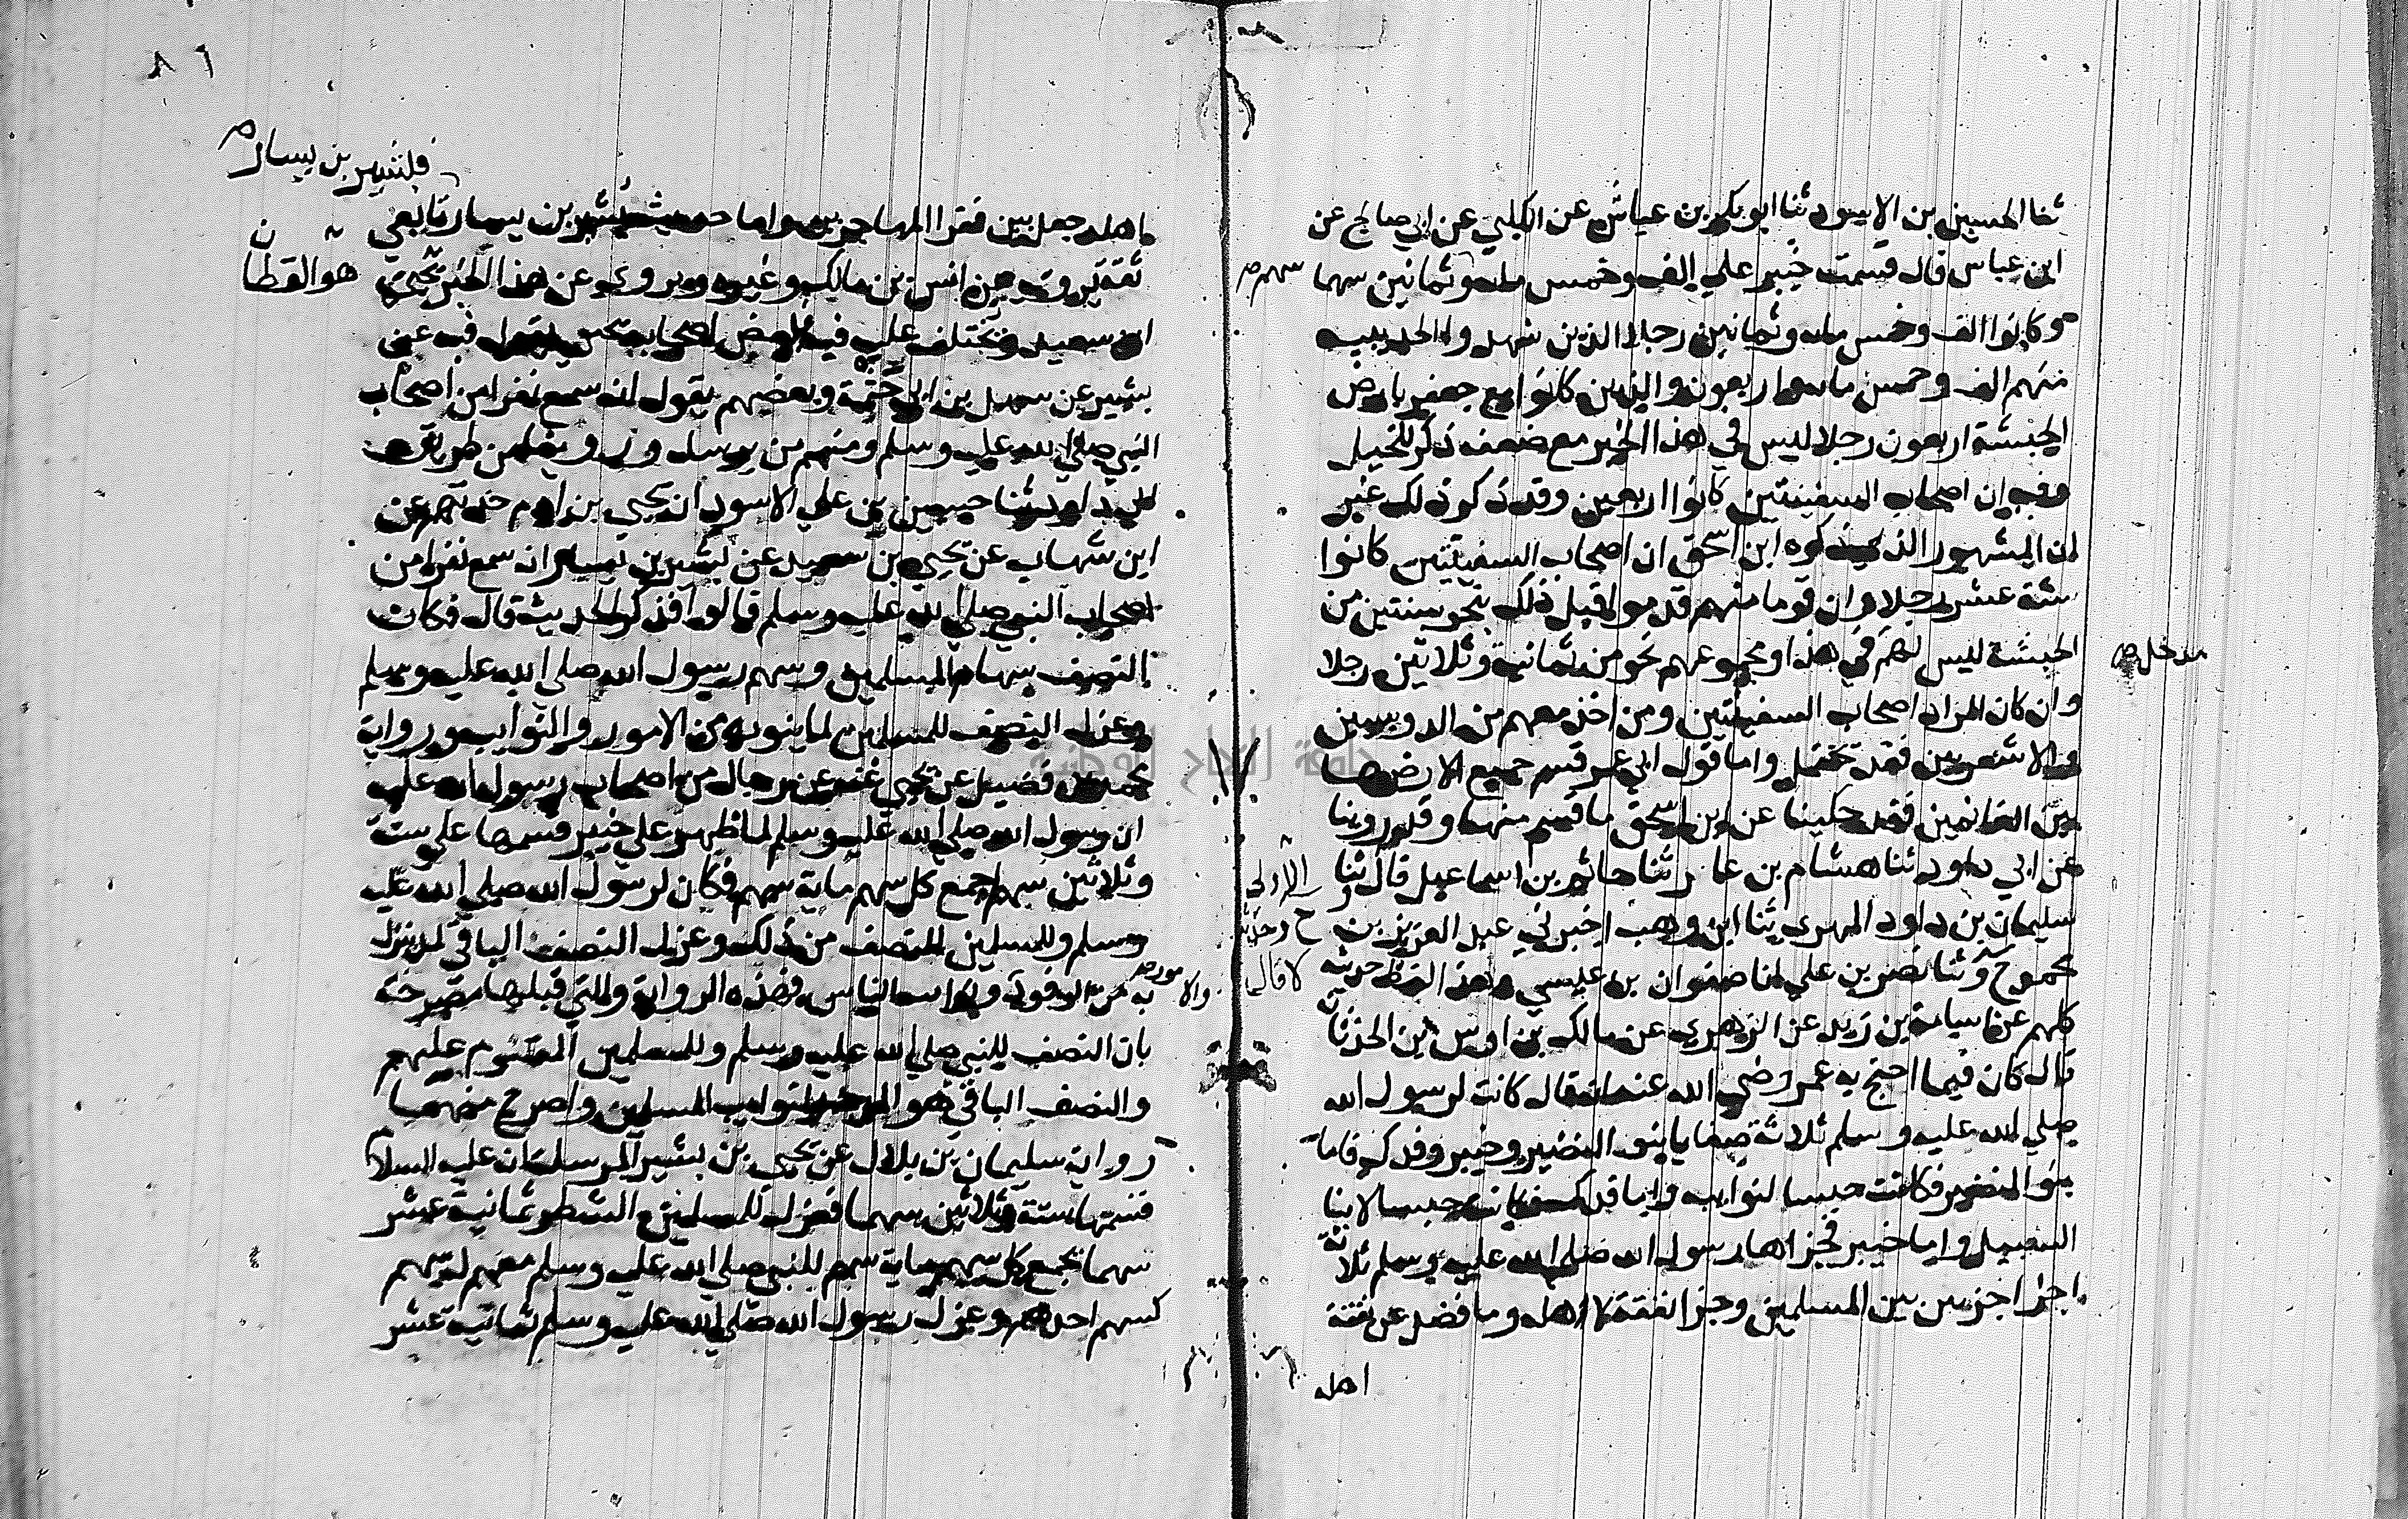 ثنا الحسين بن الاسود ثنا ابو بكر بن عياش عن الكلبي عن ابي صالح عن
ابن عباس قال قسمت خيبر علي الف وخمس مايه وثمانين سهما
سهم
وكانوا الف وخمس مايه وثمانين رجلا الذين شهدوا الحديبيه
منهم الف وخمس مايه واربعون والذين كانوا مع جعفر بارض
الحبشة اربعون رجلا ليس في هذا الخبر مع ضعفه ذكر للخيل
وفيه ان اصحاب السفينتين كانوا اربعين وقد ذكر ذلك غير
ان المشهور الذي ذكره ابن اسحق ان اصحاب السفينتين كانوا
ستة عشر رجلا وان قوما منهم قدموا قبل ذلك بنحو سنتين من
الحبشة ليس لهم في هذا ومجموعهم نحو من ثمانية وثلاثين رجلا
مدخل
وان كان المراد اصحاب السفينتين ومن اخذ معهم من الدوسيين
والاشعريين فقد يحتمل واما قول ابي عمر قسم جميع الارض
بين الغانمين فقد حكينا عن ابن اسحق ما قسم منها وقد روينا
عن ابي داود ثنا هشام بن عمار ثنا حاتم بن اسماعيل قال وثنا
سليمان بن داود المهري ثنا ابن وهب اخبرني عبد العزيز بن
محمد ح وثنا نصر بن علي انا صفوان بن عيسي وهذا لفظ حديثه
كلهم عن اسامة بن زيد عن الزهري عن مالك بن اوس بن الحدثان
قال كان فيما احتج به عمر رضي الله عنه انه قال كانت لرسول الله
صلي الله عليه وسلم ثلاثة صفايا بنو النضير وخيبر وفدك فاما
بنو النضير فكانت حبسا لنوايبه واما فدك فكانت حبسا لابنا
السبيل واما خيبر فجزاها رسول الله صلي الله عليه وسلم ثلاثة
اجزا جزيين بين المسلمين وجزا نفقة لاهله وما فضل عن نفقة
اهله
٨٦
بشير بن يسار
اهله جعل بين فقرا المهاجرين واما حديث بشير بن يسار تابعي
ثقة يروي عن انس بن مالك وغيره ويروي عن هذا الخبر يحيي
هو القطان
ابن سعيد ويختلف عليه فيه بعض اصحاب يحيي يقول فيه عن
بشير عن سهل بن ابي حثمة وبعضهم يقول انه سمع نفرا من اصحاب
النبي صلي الله عليه وسلم ومنهم من يرسله وروينا من طريق
ابي داود ثنا حسين بن علي الاسود ان يحيي بن ادم حدثهم عن
ابن شهاب عن يحيي بن سعيد عن بشير بن يسار انه سمع نفرا من
اصحاب النبي صلي الله عليه وسلم قالوا فذكر الحديث قال فكان
النصف سهام المسلمين وسهم رسول الله صلي الله عليه وسلم
وعزل النصف للمسلمين لما ينوبه من الامور والنوايب ورواية
محمد بن فضيل عن يحيي عنه عن رجال من اصحاب رسول الله عليه
ان رسول الله صلي الله عليه وسلم لما ظهر علي خيبر قسمها علي ستة
وثلاثين سهما جمع كل سهم ماية سهم فكان لرسول الله صلي الله عليه
وسلم وللمسلمين النصف من ذلك وعزل النصف الباقي لمن ينزل
به من الوفود ونوايب الناس فهذه الرواية والتي قبلها مصرحة
والامور
بان النصف للنبي صلي الله عليه وسلم وللمسلمين المقسوم عليهم
والنصف الباقي هو المؤخر لنوايب المسلمين واصرح منهما
رواية سليمان بن بلال عن يحيي بن بشير المرسلة انه عليه السلام
قسمها ستة وثلاثين سهما فعزل للمسلمين الشطر ثمانية عشر
سهما يجمع كل سهم ماية سهم للنبي صلي الله عليه وسلم معهم له سهم
كسهم احدهم وعزل رسول الله صلي الله عليه وسلم ثمانية عشر
جامعة النجاح الوطنية